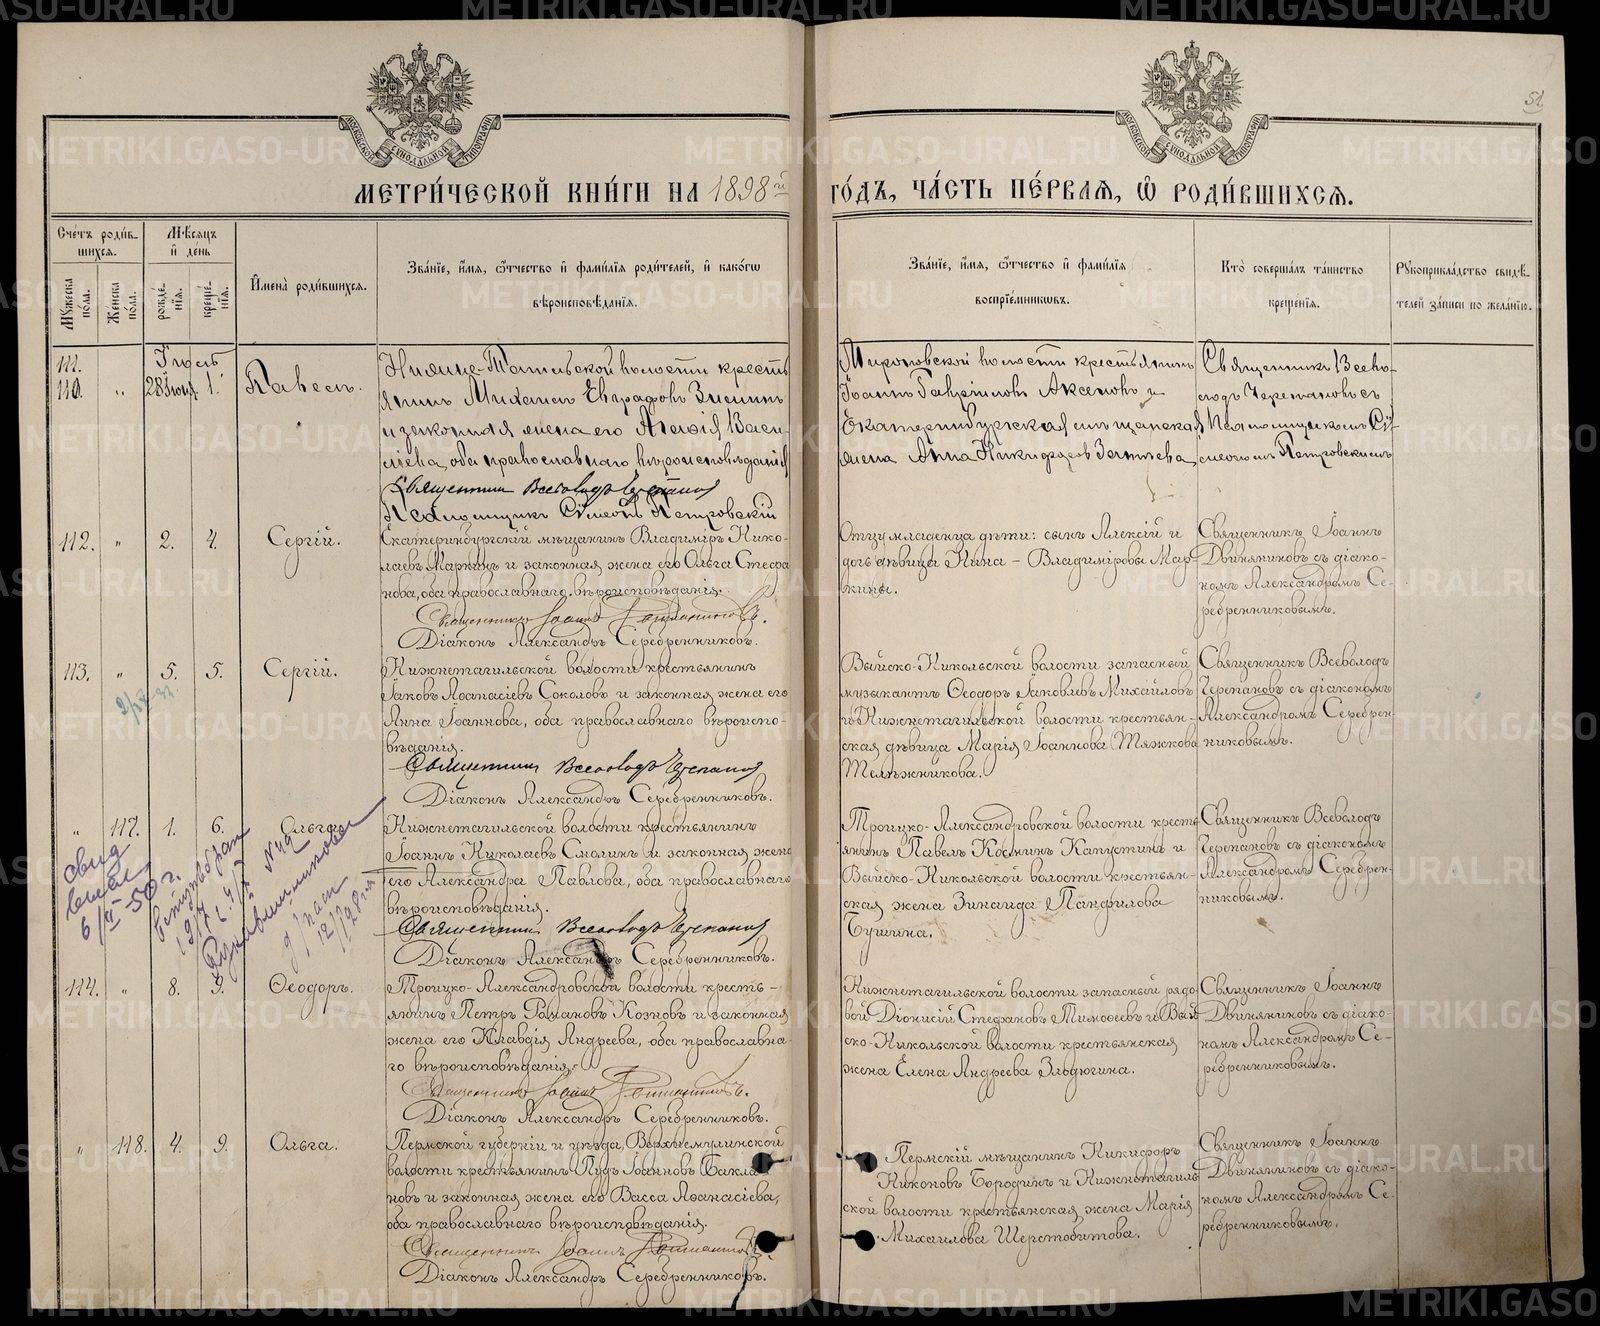 51
МОСКОВСКОЙ СѴНОДАЛЬНОЙ ТИПОГРАФІИ
МОСКОВСКОЙ СѴНОДАЛЬНОЙ ТИПОГРАФІИ
МЕТРИ́ЧЕСКОЙ КНИ́ГИ НА 1898й ГО́ДЪ, ЧА́СТЬ ПЕ́РВАЯ, Ѡ РОДИ́ВШИХСЯ.
Сче́тъ роди́в-
шихся.
Му́жеска по́ла.
Же́нска по́ла.
Мѣ́сяцъ
и де́нь
рожде́-
нія.
креще́-
нія.
Имена̀ роди́вшихся.
Зва́ніе, и́мя, ѻ́тчество и фами́лія роди́телей, и како́гѡ
вѣроисповѣ́данія.
Зва́ніе, и́мя, ѻ́тчество и фами́лія
воспріе́мниковъ.
Кто̀ соверша́лъ та́инство
креще́нія.
Рукоприкла́дство свидѣ́-
телей за́писи по жела́нію.
111.
Іюль
110. " 28 Іюня. 1. Павелъ.
Нижне-Тагильской волости кресть
янинъ Михаилъ Евграфовъ Зиминъ
и законная жена его Агафія Васи-
льева, оба православнаго вѣроисповѣданія
Священникъ Всеволодъ Черепановъ
Псаломщикъ Сѵмеонъ Петровскій
Мироновской волости крестьянинъ
Іоаннъ Гавріиловъ Аксеновъ и
Екатеринбургская мѣщанская
жена Анна Никифорова Зотѣева
Священникъ Всево-
лодъ Черепановъ съ
Псаломщикомъ Сѵ-
меономъ Петровскимъ
112. " 2. 4. Сергій.
Екатеринбургскій мѣщанинъ Владиміръ Нико-
лаевъ Маркинъ и законная жена его Ольга Стефа
нова, оба православнаго вѣроисповѣданія.
Священникъ Іоаннъ Двиняниновъ.
Діаконъ Александръ Серебренниковъ.
Отцу младенца дѣти: сынъ Алексій и
дочь дѣвица Нина - Владиміровы Мар-
кины.
Священникъ Іоаннъ
Двиняниновъ съ діако-
номъ Александромъ Се-
ребренниковымъ.
113. " 5. 5. Сергій.
Нижнетагильской волости крестьянинъ
Іаковъ Аѳанасіевъ Соколовъ и законная жена его
Анна Іоаннова, оба православнаго вѣроиспо-
вѣданія.
Священникъ Всеволодъ Черепановъ
Діаконъ Александръ Серебренниковъ.
Выйско-Никольской волости запасный
музыкантъ Ѳеодоръ Іаковлевъ Михайловъ
и Нижнетагильской волости крестьян-
ская дѣвица Марія Іоаннова Тяжкова
Тележникова.
Священникъ Всеволодъ
Черепановъ съ діакономъ
Александромъ Серебрен-
никовымъ.
" 117. 1. 6. Ольга.
Нижнетагильской волости крестьянинъ
Іоаннъ Николаевъ Смолинъ и законная жена
его Александра Павлова, оба православнаго
вѣроисповѣданія.
Священникъ Всеволодъ Черепановъ
Діаконъ Александръ Серебренниковъ.
Троицко-Александровской волости кресть
янинъ Павелъ Косминъ Капустинъ и
Выйско-Никольской волости крестьян-
ская жена Зинаида Панфилова
Бушина.
Священникъ Всеволодъ
Черепановъ съ діакономъ
Александромъ Серебрен-
никовымъ.
114. " 8. 9. Ѳеодоръ.
Троицко-Александровской волости кресть-
янинъ Петръ Романовъ Козновъ и законная
жена его Клавдія Андреева, оба православна
го вѣроисповѣданія.
Священникъ Іоаннъ Двиняниновъ.
Діаконъ Александръ Серебренниковъ.
Нижнетагильской волости запасный рядо
вой Діонисій Стефановъ Тимоѳеевъ и Вый
ско-Никольской волости крестьянская
жена Елена Андреева Злодюгина.
Священникъ Іоаннъ
Двиняниновъ съ діако-
номъ Александромъ Се-
ребренниковымъ.
" 118. 4. 9. Ольга.
Пермской губерніи и уѣзда, Верхнемуллинской
волости крестьянинъ Пудъ Іоанновъ Бакла
новъ и законная жена его Васса Аѳанасіева,
оба православнаго вѣроисповѣданія.
Священникъ Іоаннъ Двиняниновъ
Діаконъ Александръ Серебренниковъ.
Пермскій мѣщанинъ Никифоръ
Никоновъ Бородинъ и Нижнетагиль
ской волости крестьянская жена Марія
Михаилова Шерстобитова.
Священникъ Іоаннъ
Двиняниновъ съ діако-
номъ Александромъ Се-
ребренниковымъ.
METRIKI.GASO-URAL.RU